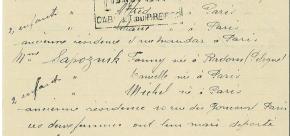 2 enfants " Alfred " à Paris
CAB
" " à Paris
ancienne résidence à Paris
Mme Sapoznik Fanny née à Radom (Pologne)
2 enfants " Camille née à Paris
" Michel né à Paris
ancienne résidence 10 rue des à Paris
ces deux femmes ont leur mari déporté